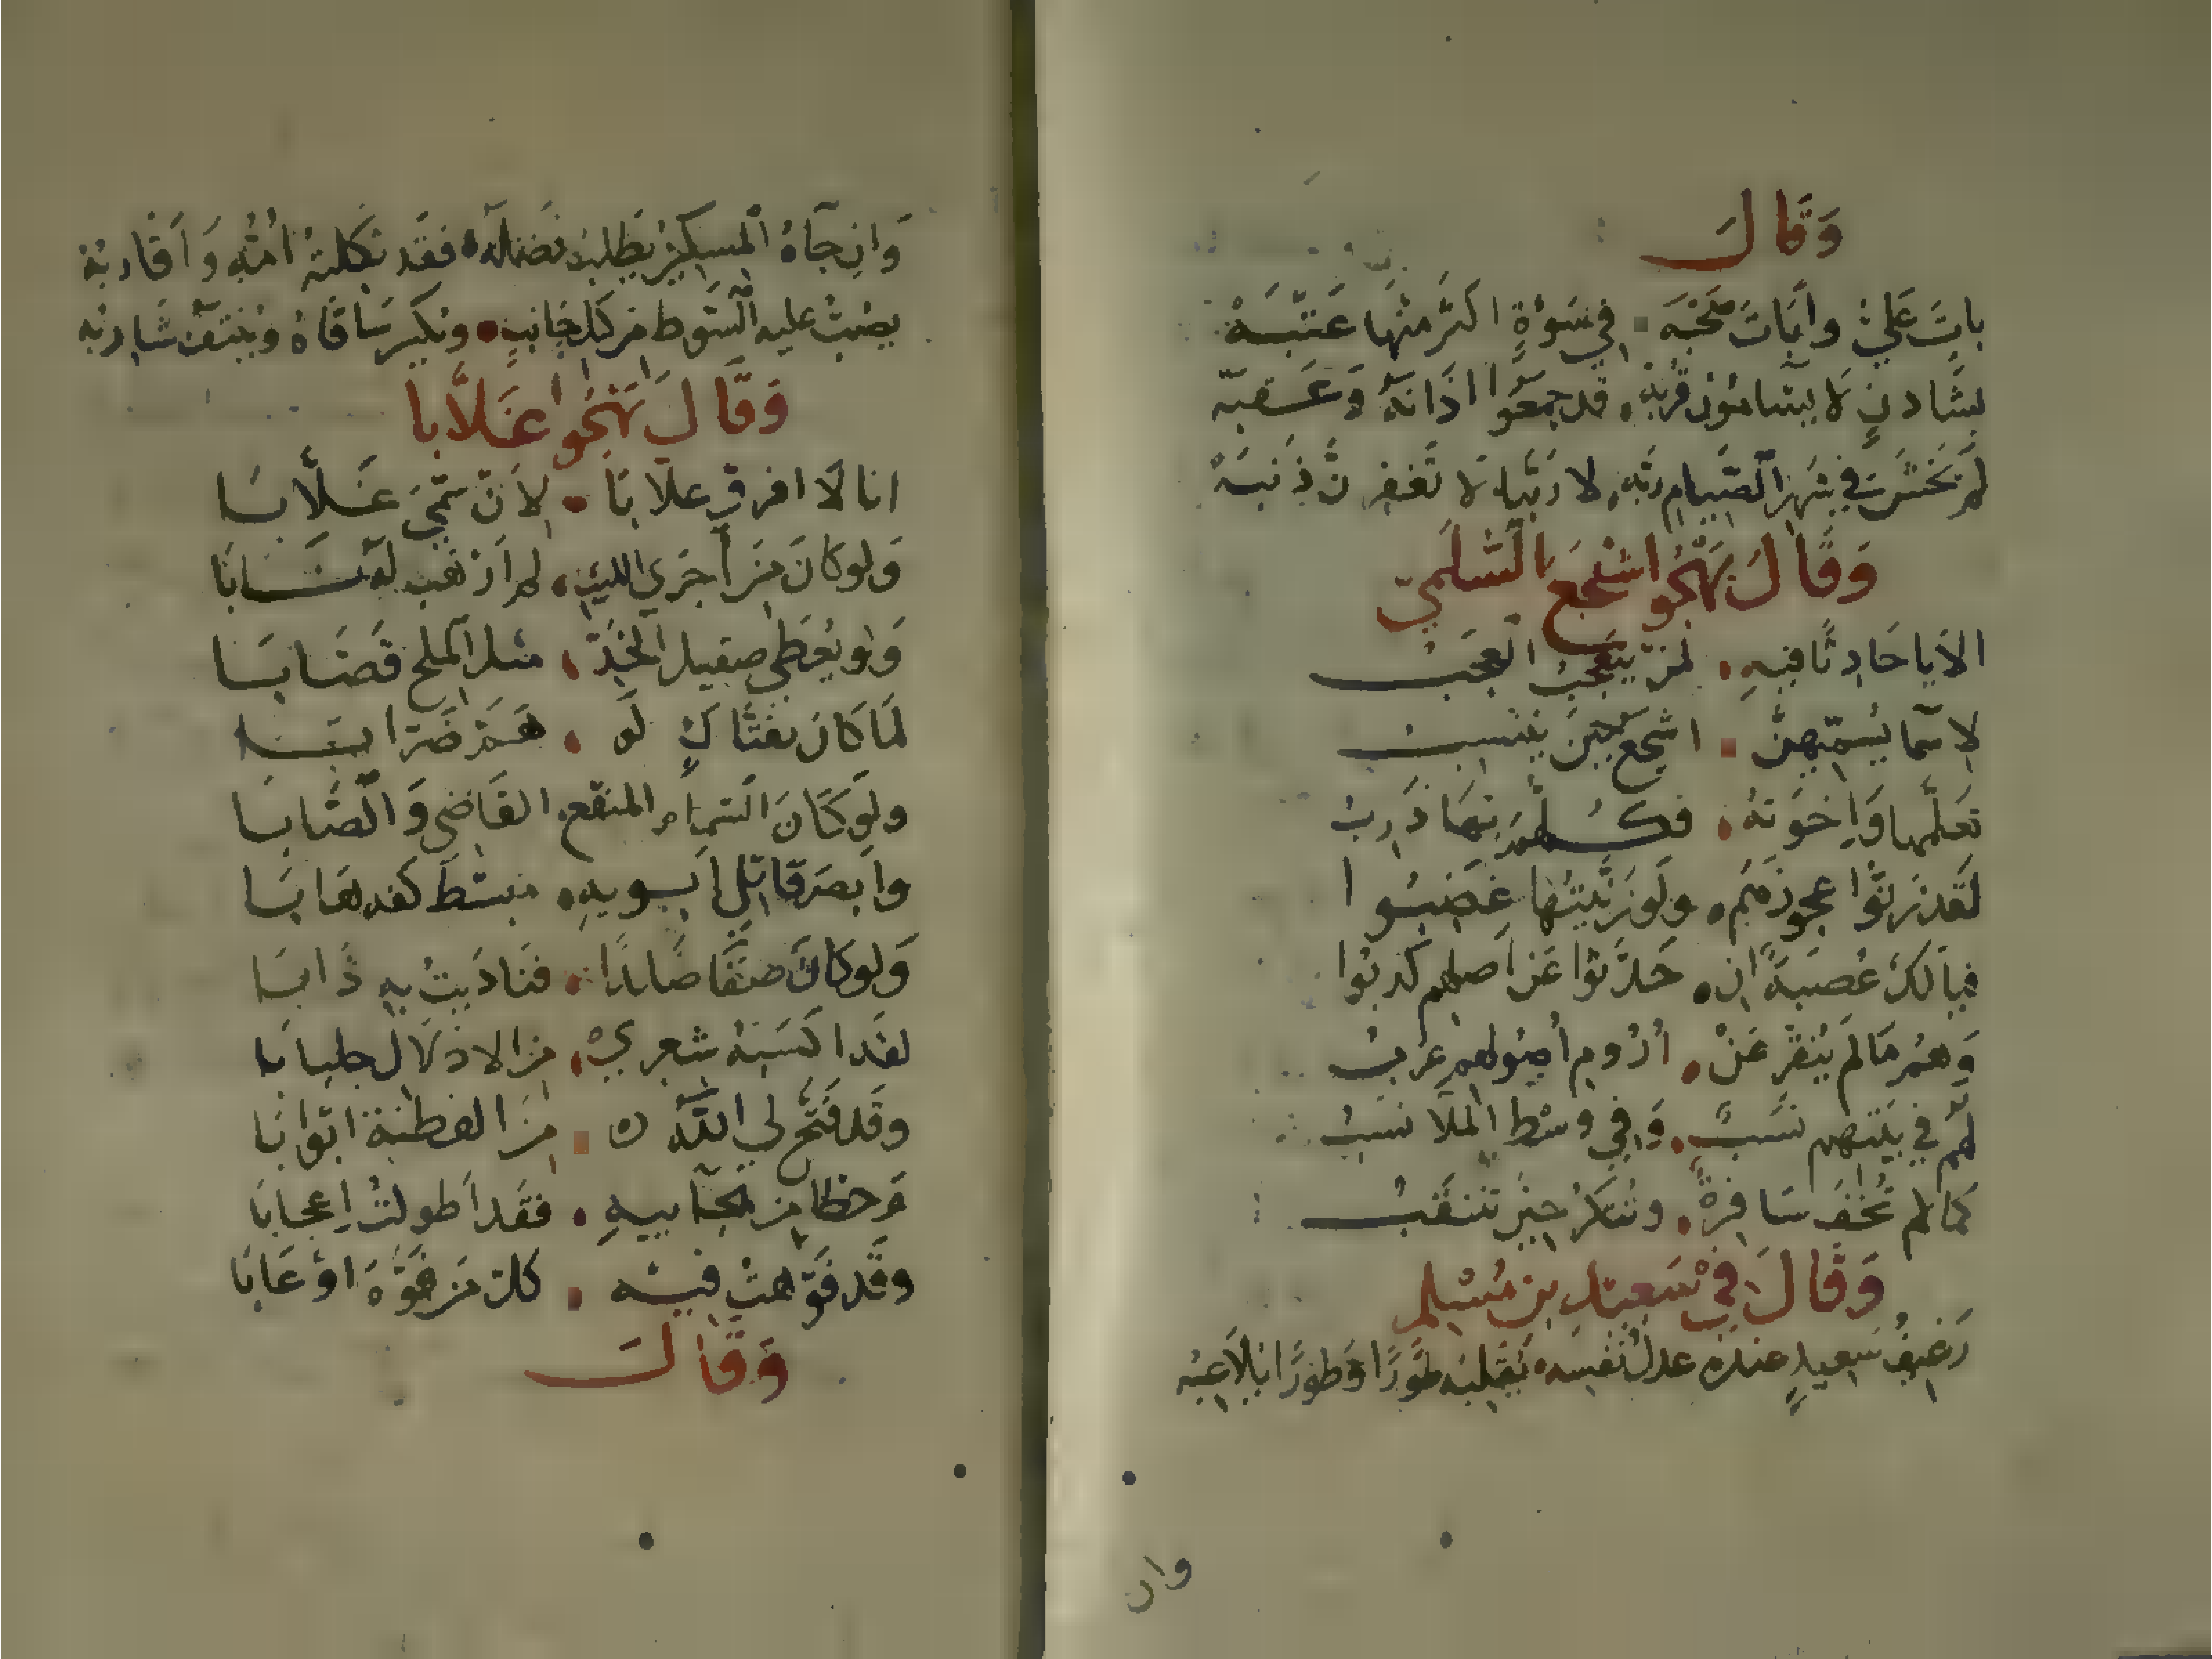 وَقَالَ
باتَ عَليٌّ وابَاتَ صَحْبَه في سَوْءَةٍ اكثَر منْهَا عَتْبَهْ
بشَادنٍ لَا يسَامُونَ قُربَه قد جمعَوا اذَانَهُ وَعَقبَهْ
لم يَخشَ في شهر الصّيام ربَّه لا ربَّنا لا تغفرنَّ ذَنبَهْ
وَقَالَ يَهْجُو اشْجَعَ السُّلَميّ
الا يا حَادِثًا فيهِ لمن يَتَعَجّبُ العَجَبُ
لاسمَا يُسَمّيهنّ اشجَعُ حِينَ ينتسبُ
تعَلّمها وَإخوَتهُ فكُلّهُم بهَا ذَرِبُ
لَقد رَبّوا عجوزهُم ولَو زَيّنتُها غضِبُوا
فيالكَ عُصبَةً ان حَدّثوا عَن اصلهم كذبُوا
وَهُمُ مَا لم يُنَقّر عَنْ ارُومِ اصُولهم عرَبُ
لهم في بَيْتهم نَسَبٌ وَفي وسْط الملَا نَسَبُ
كمَا لم تُخفَ سَافِرةٌ وتُنكرُ حِينَ تَنتَقبُ
وَقَالَ في سَعِيد بن مُسْلم
رَغيفُ سَعِيدٍ عنده عدل نَفسِه يُقَلّبه طَورًا وَطورًا يُلاعِبُه
وان
وَان جَاءهُ المسكينُ يطلبُ فَضلهُ فقد ثكلتهُ امُّه وَاقَاربُهْ
يصُبُّ عليه السَّوط من كل جَانبٍ وتكسَر سَاقَاهُ ويُنتَف شَاربُه
وَقَالَ يَهْجُو عَلَّابا
انا لَا افرق عَلّابَا لاَنْ سُمّيَ عَلَّابَا
وَلو كانَ من اجرَي الليث لم ارْهَب له نَابَا
وَلو يعُطى صقيل الخَدّ مثل الملح قَصّابَا
لمَا كان بفَتّاكٍ لَو هَمّ ضَرّابَا
ولو كَانَ السَّم المنقع القَاضي وَالصَّابَا
وابصَر قاتِل
وَلو كانَ صفًّا صَلدًا فنَادَيتُ به ذَابَا
لقَد اكسَبَهُ شعرِي من الاذلَال جلبَابَا
وقد فَتَّحَ لي اللّه من الفطنَةِ ابوَابَا
وَحظّا من فقد اطولتُ إعجابَا
وقد فَوّهتُ فيه كلّ من فَوّهَ اوْ عَابَا
وَقَالَ